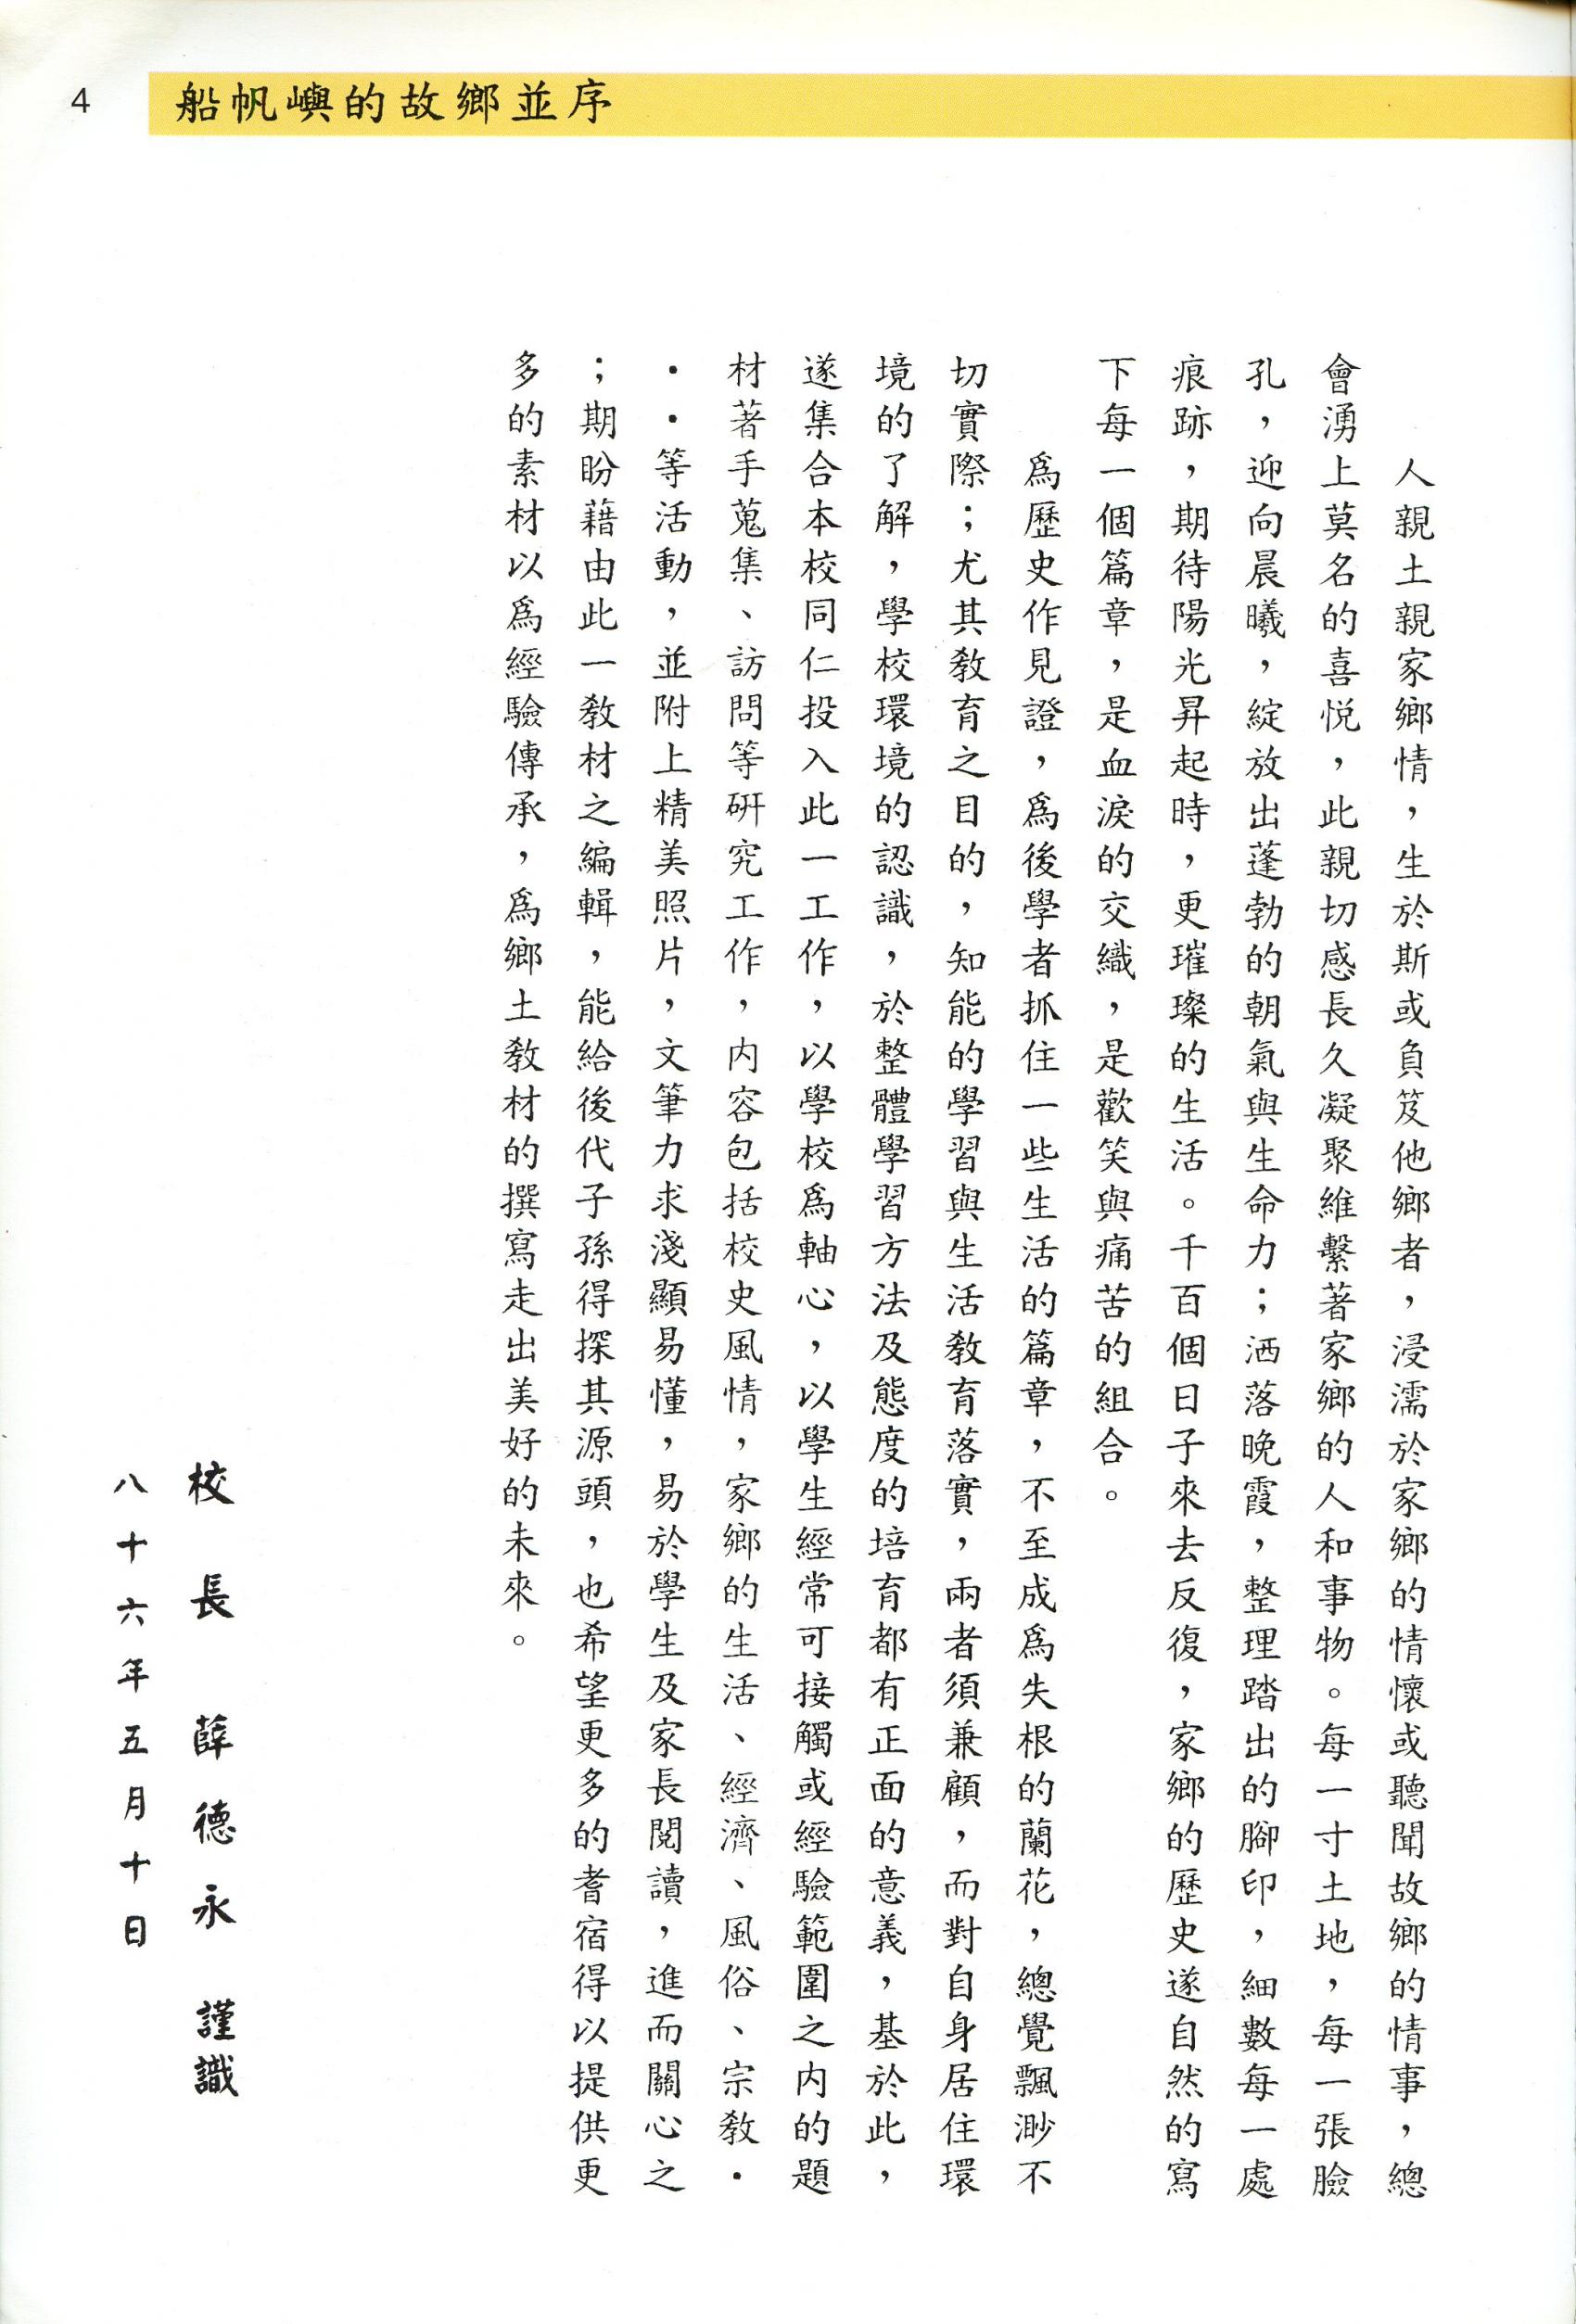 4
船帆嶼的故鄉並序
人親土親家鄉情，生於斯或負笈他鄉者，浸濡於家鄉的情懷或聽聞故鄉的情事，總
會湧上莫名的喜悅，此親切感長久凝聚維繫著家鄉的人和事物。每一寸土地，每一張臉
孔，迎向晨曦，綻放出蓬勃的朝氣與生命力；洒落晚霞，整理踏出的腳印，細數每一處
痕跡，期待陽光昇起時，更璀璨的生活。千百個日子來去反復，家鄉的歷史遂自然的寫
下每一個篇章，是血淚的交織，是歡笑與痛苦的組合。
爲歷史作見證，爲後學者抓住一些生活的篇章，不至成爲失根的蘭花，總覺飄渺不
切實際；尤其教育之目的，知能的學習與生活教育落實，兩者須兼顧，而對自身居住環
境的了解，學校環境的認識，於整體學習方法及態度的培育都有正面的意義，基於此，
遂集合本校同仁投入此一工作，以學校爲軸心，以學生經常可接觸或經驗範圍之內的題
材著手蒐集、訪問等研究工作，內容包括校史風情，家鄉的生活、經濟、風俗、宗教・
・・等活動，並附上精美照片，文筆力求淺顯易懂，易於學生及家長閱讀，進而關心之
；期盼藉由此一教材之編輯，能給後代子孫得探其源頭，也希望更多的耆宿得以提供更
多的素材以爲經驗傳承，爲鄉土教材的撰寫走出美好的未來。
校長 薛德永 謹識
八十六年五月十日